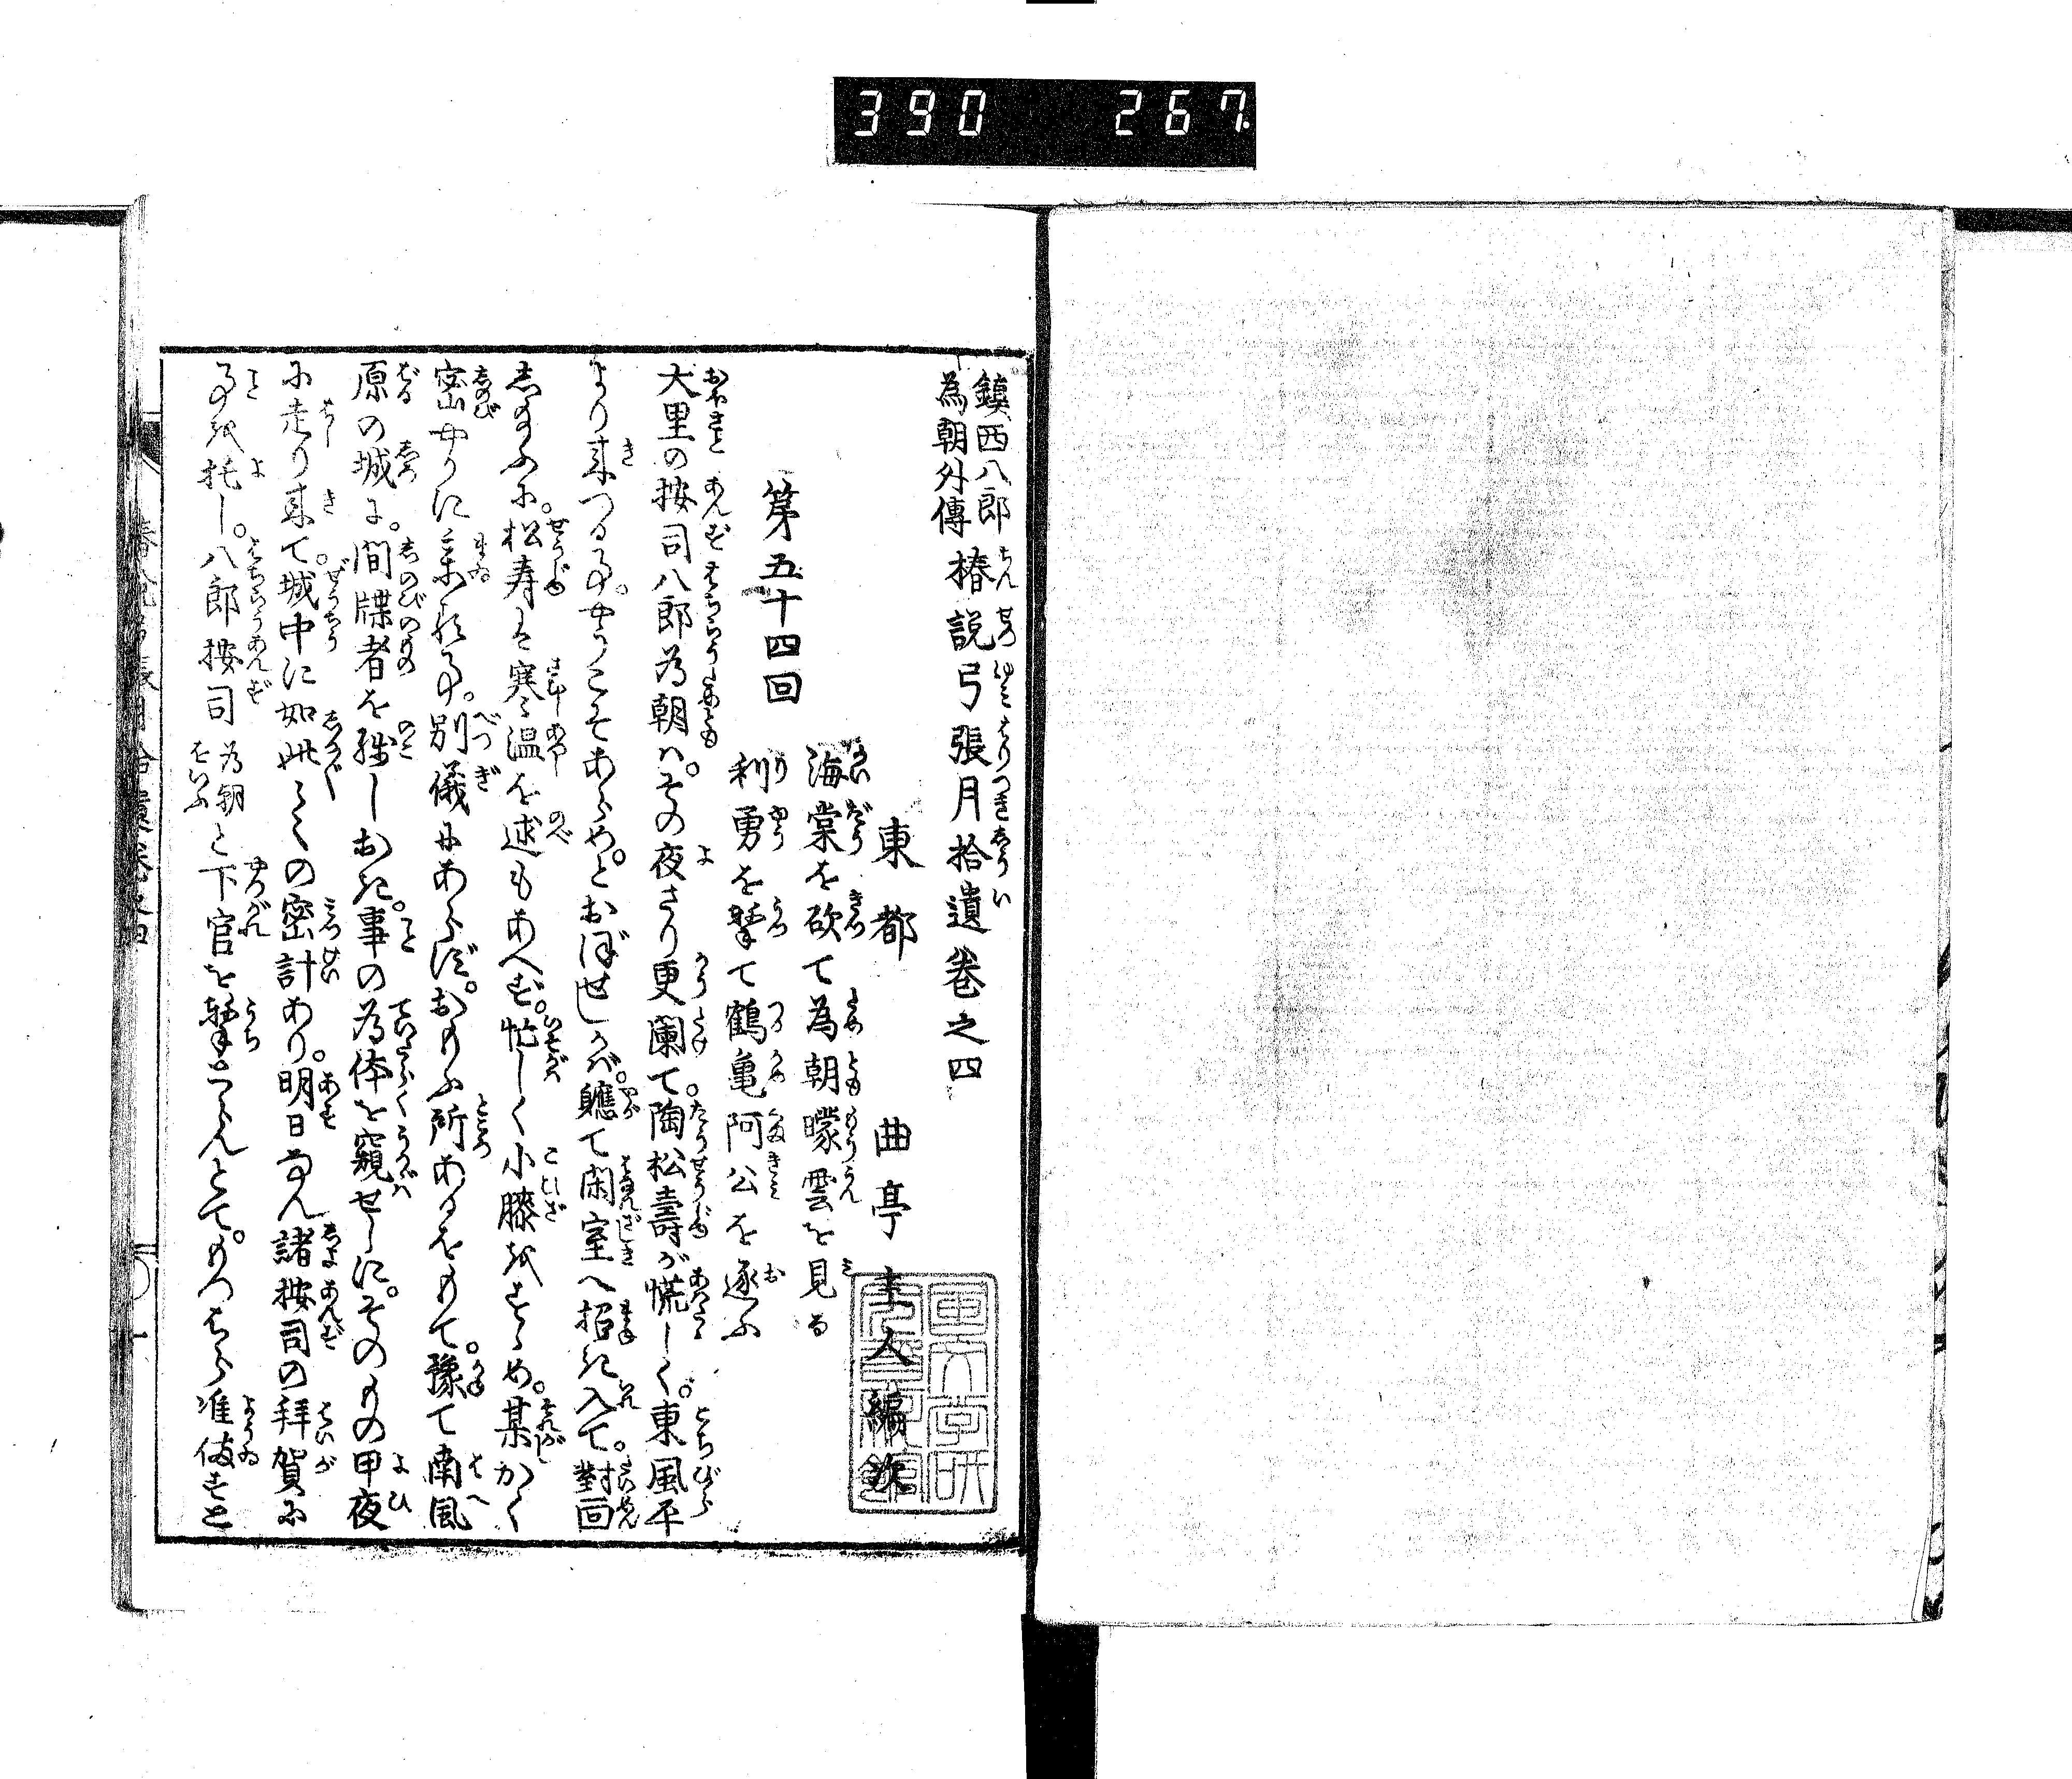 390 267
鎮西八郎
為朝外傳
椿説弓張月拾遺巻之四
東都 曲亭主人編次
第五十四回
海棠を砍て為朝曚雲を見る
利勇を撃て鶴亀阿公を逐ふ
大里の按司八郎為朝ハ。その夜さり更闌て。陶松壽が慌しく。東風平
より来つる事。やうこそあらめ。とおぼせしかば。軈て閑室へ招き入て。對面
し給ふに。松寿は寒温を述もあへず。忙しく小膝をすゝめ。某かく
密やかに来れる事。別儀にあらず。おもふ所あるをもて。豫て南風
原の城に。間牒者を残しおき。事の為体を窺せしに。そのもの甲夜
に走り来て。城中に如此々々の密計あり。明日なん諸按司の拝賀に
事を托し。八郎按司 為朝をいふ と下官を撃とらんとて。もつはら准備すと